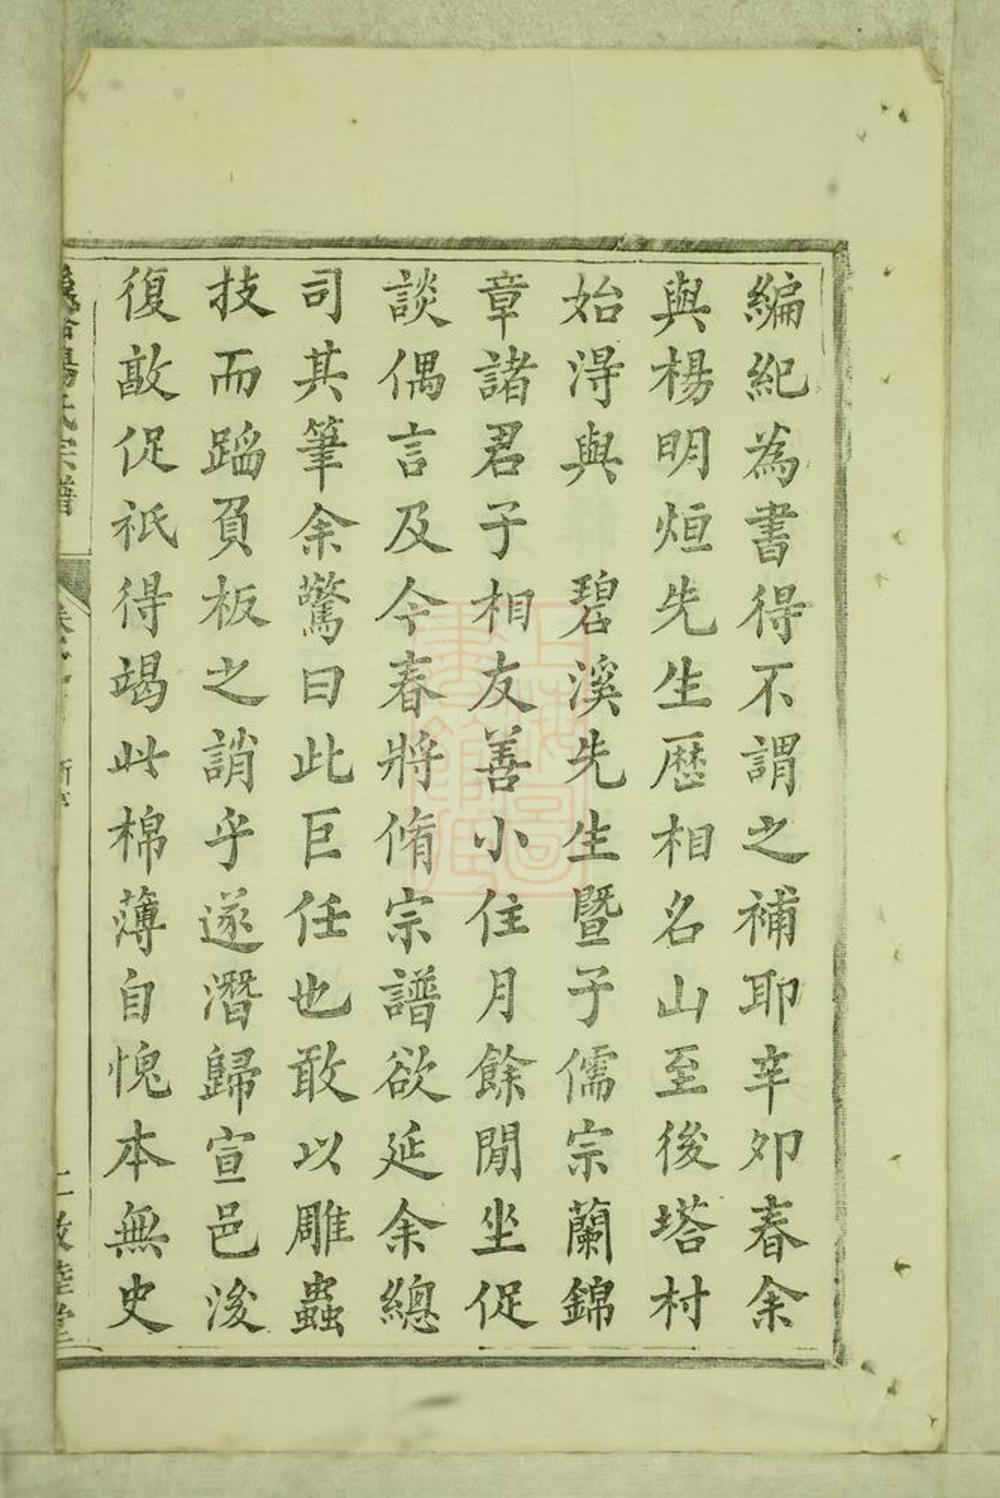 編紀為書得不謂之補耶辛夘春余
與楊明烜先生歷相名山至後塔村
始淂與　碧溪先生暨子儒宗蘭錦
章諸君子相友善小住月餘閒坐促
談偶言及今春將脩宗譜欲延余總
司其筆余驚曰此巨任也敢以雕蟲
技而蹈負板之誚乎遂潛歸宣邑浚
復敺促祇得竭此棉薄自愧本無史
楊氏宗譜